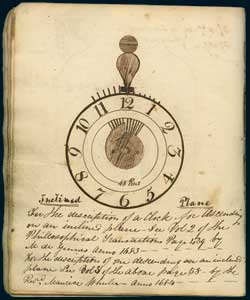 12
11 1
10 2
9 3
8 4
7 5
6
48 Rus
Inclined Plane
For the description of a Clock for Ascending
on an inclined plane See Vol 2 of the
Philosophical Transactions Page 129 By
M de Gennes Anno 1683
For the description of one descending on an inclined
plane See Vol 3 of the above page 63 - by the
Revd. Maurice Wheeler - Anno 1684